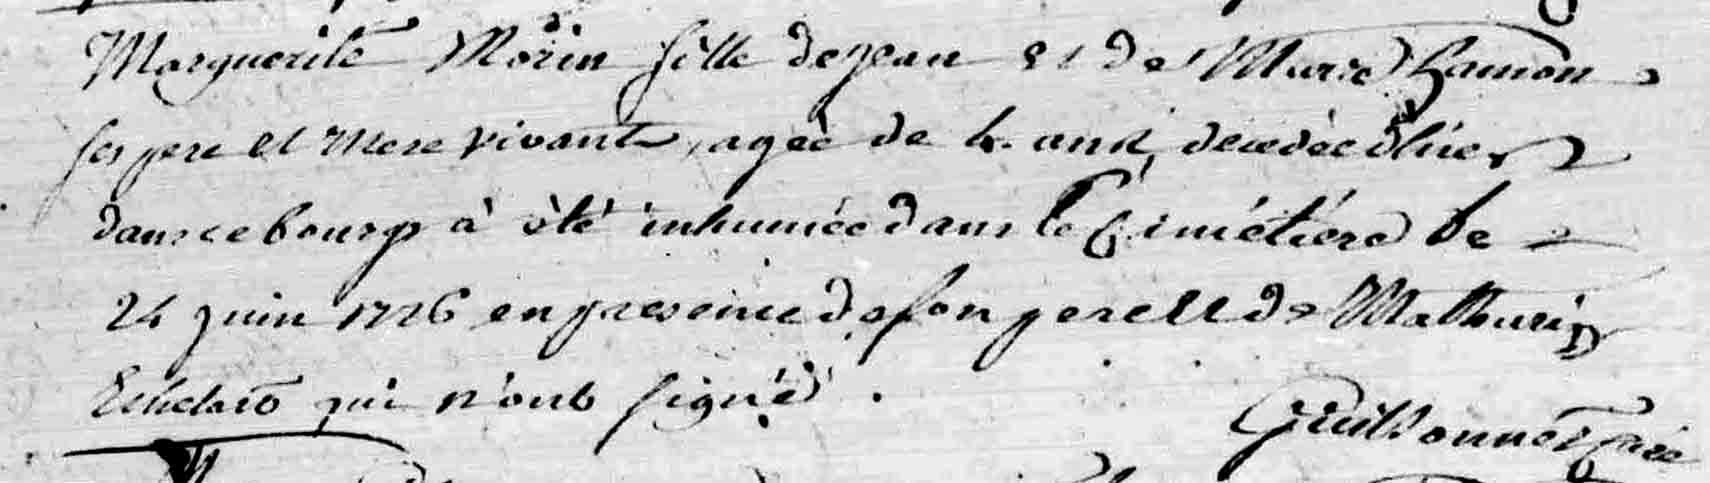 Marguerite Morin fille de jean et de Marie Hamon
ses pere et mere vivants, agée de 4. ans decedée d'hier
dans ce bourg à été inhumée dans le Cimétiére le
24 juin 1726 en presence de son pere et de Mathurin
qui n'ont signé.
Guillonnet